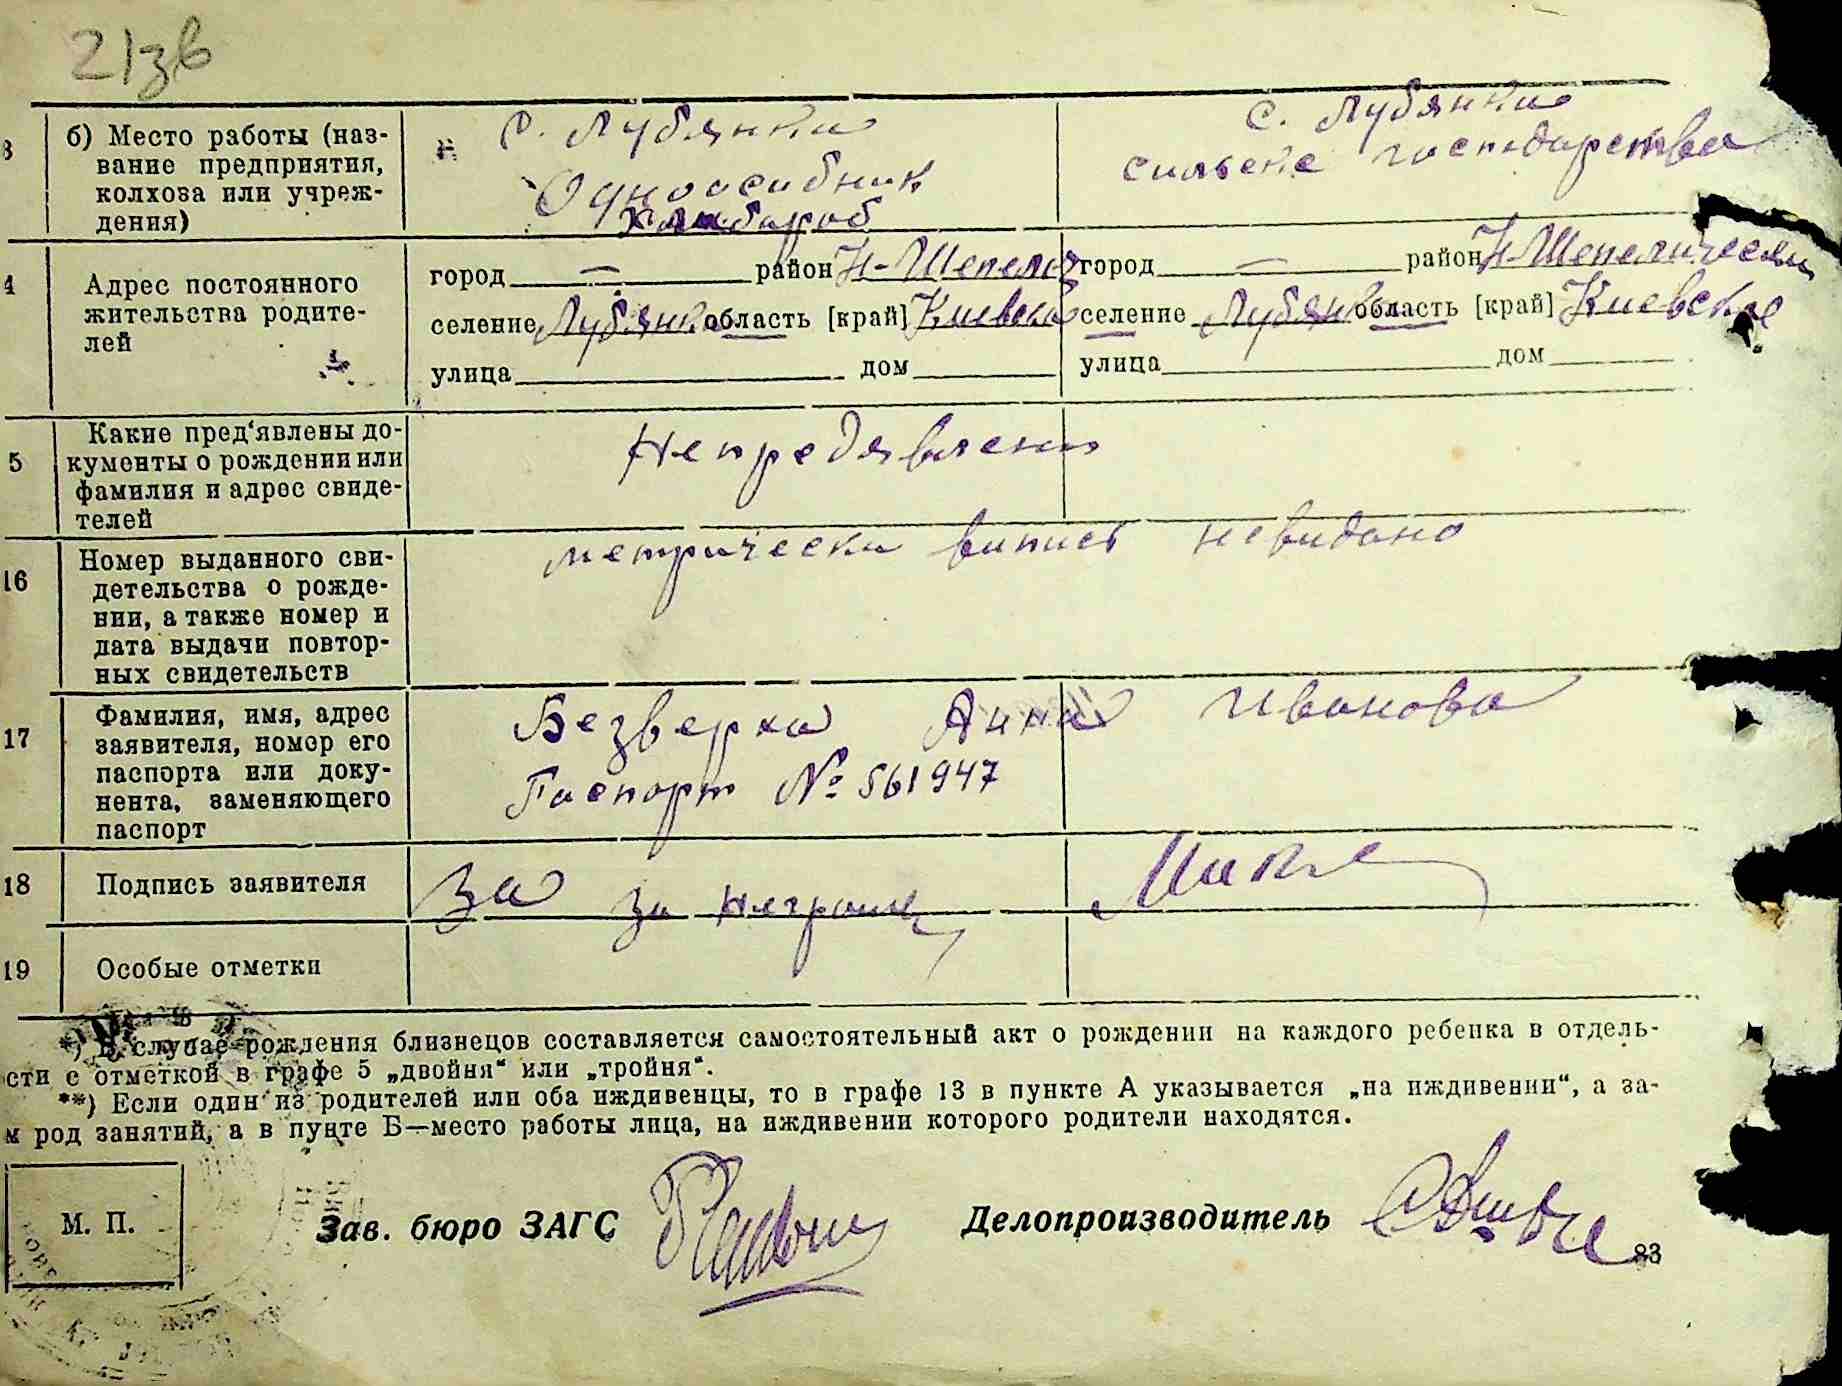 21зв
3 б) Место работы (наз-
вание предприятия,
колхоза или учреж-
дения)
с. Лубянка
Одноосибник
Хлібороб
с. Лубянка
сильске господарства
4 Адрес постоянного
жительства родите-
лей
город — район Н-Шепел
селение Лубянка область [край] Киевска
улица дом
город — район Н-Шепелически
селение Лубянка область [край] Киевское
улица дом
5 Какие пред'явлены до-
кументы о рождении или
фамилия и адрес свиде-
телей
Непредявлени
16 Номер выданного сви-
детельства о рожде-
нии, а также номер и
дата выдачи повтор-
ных свидетельств
метрически випись невидано
17 Фамилия, имя, адрес
заявителя, номер его
паспорта или доку-
нента, заменяющего
паспорт
Безверха Анна Иванова
Паспорт № 561947
18 Подпись заявителя
За за неграмот
19 Особые отметки
*) В случае рождения близнецов составляется самостоятельный акт о рождении на каждого ребенка в отдель-
сти с отметкой в графе 5 „двойня" или „тройня".
**) Если один из родителей или оба иждивенцы, то в графе 13 в пункте А указывается „на иждивении", а за-
м род занятий, а в пункте Б—место работы лица, на иждивении которого родители находятся.
М. П.
Зав. бюро ЗАГС
Делопроизводитель
83